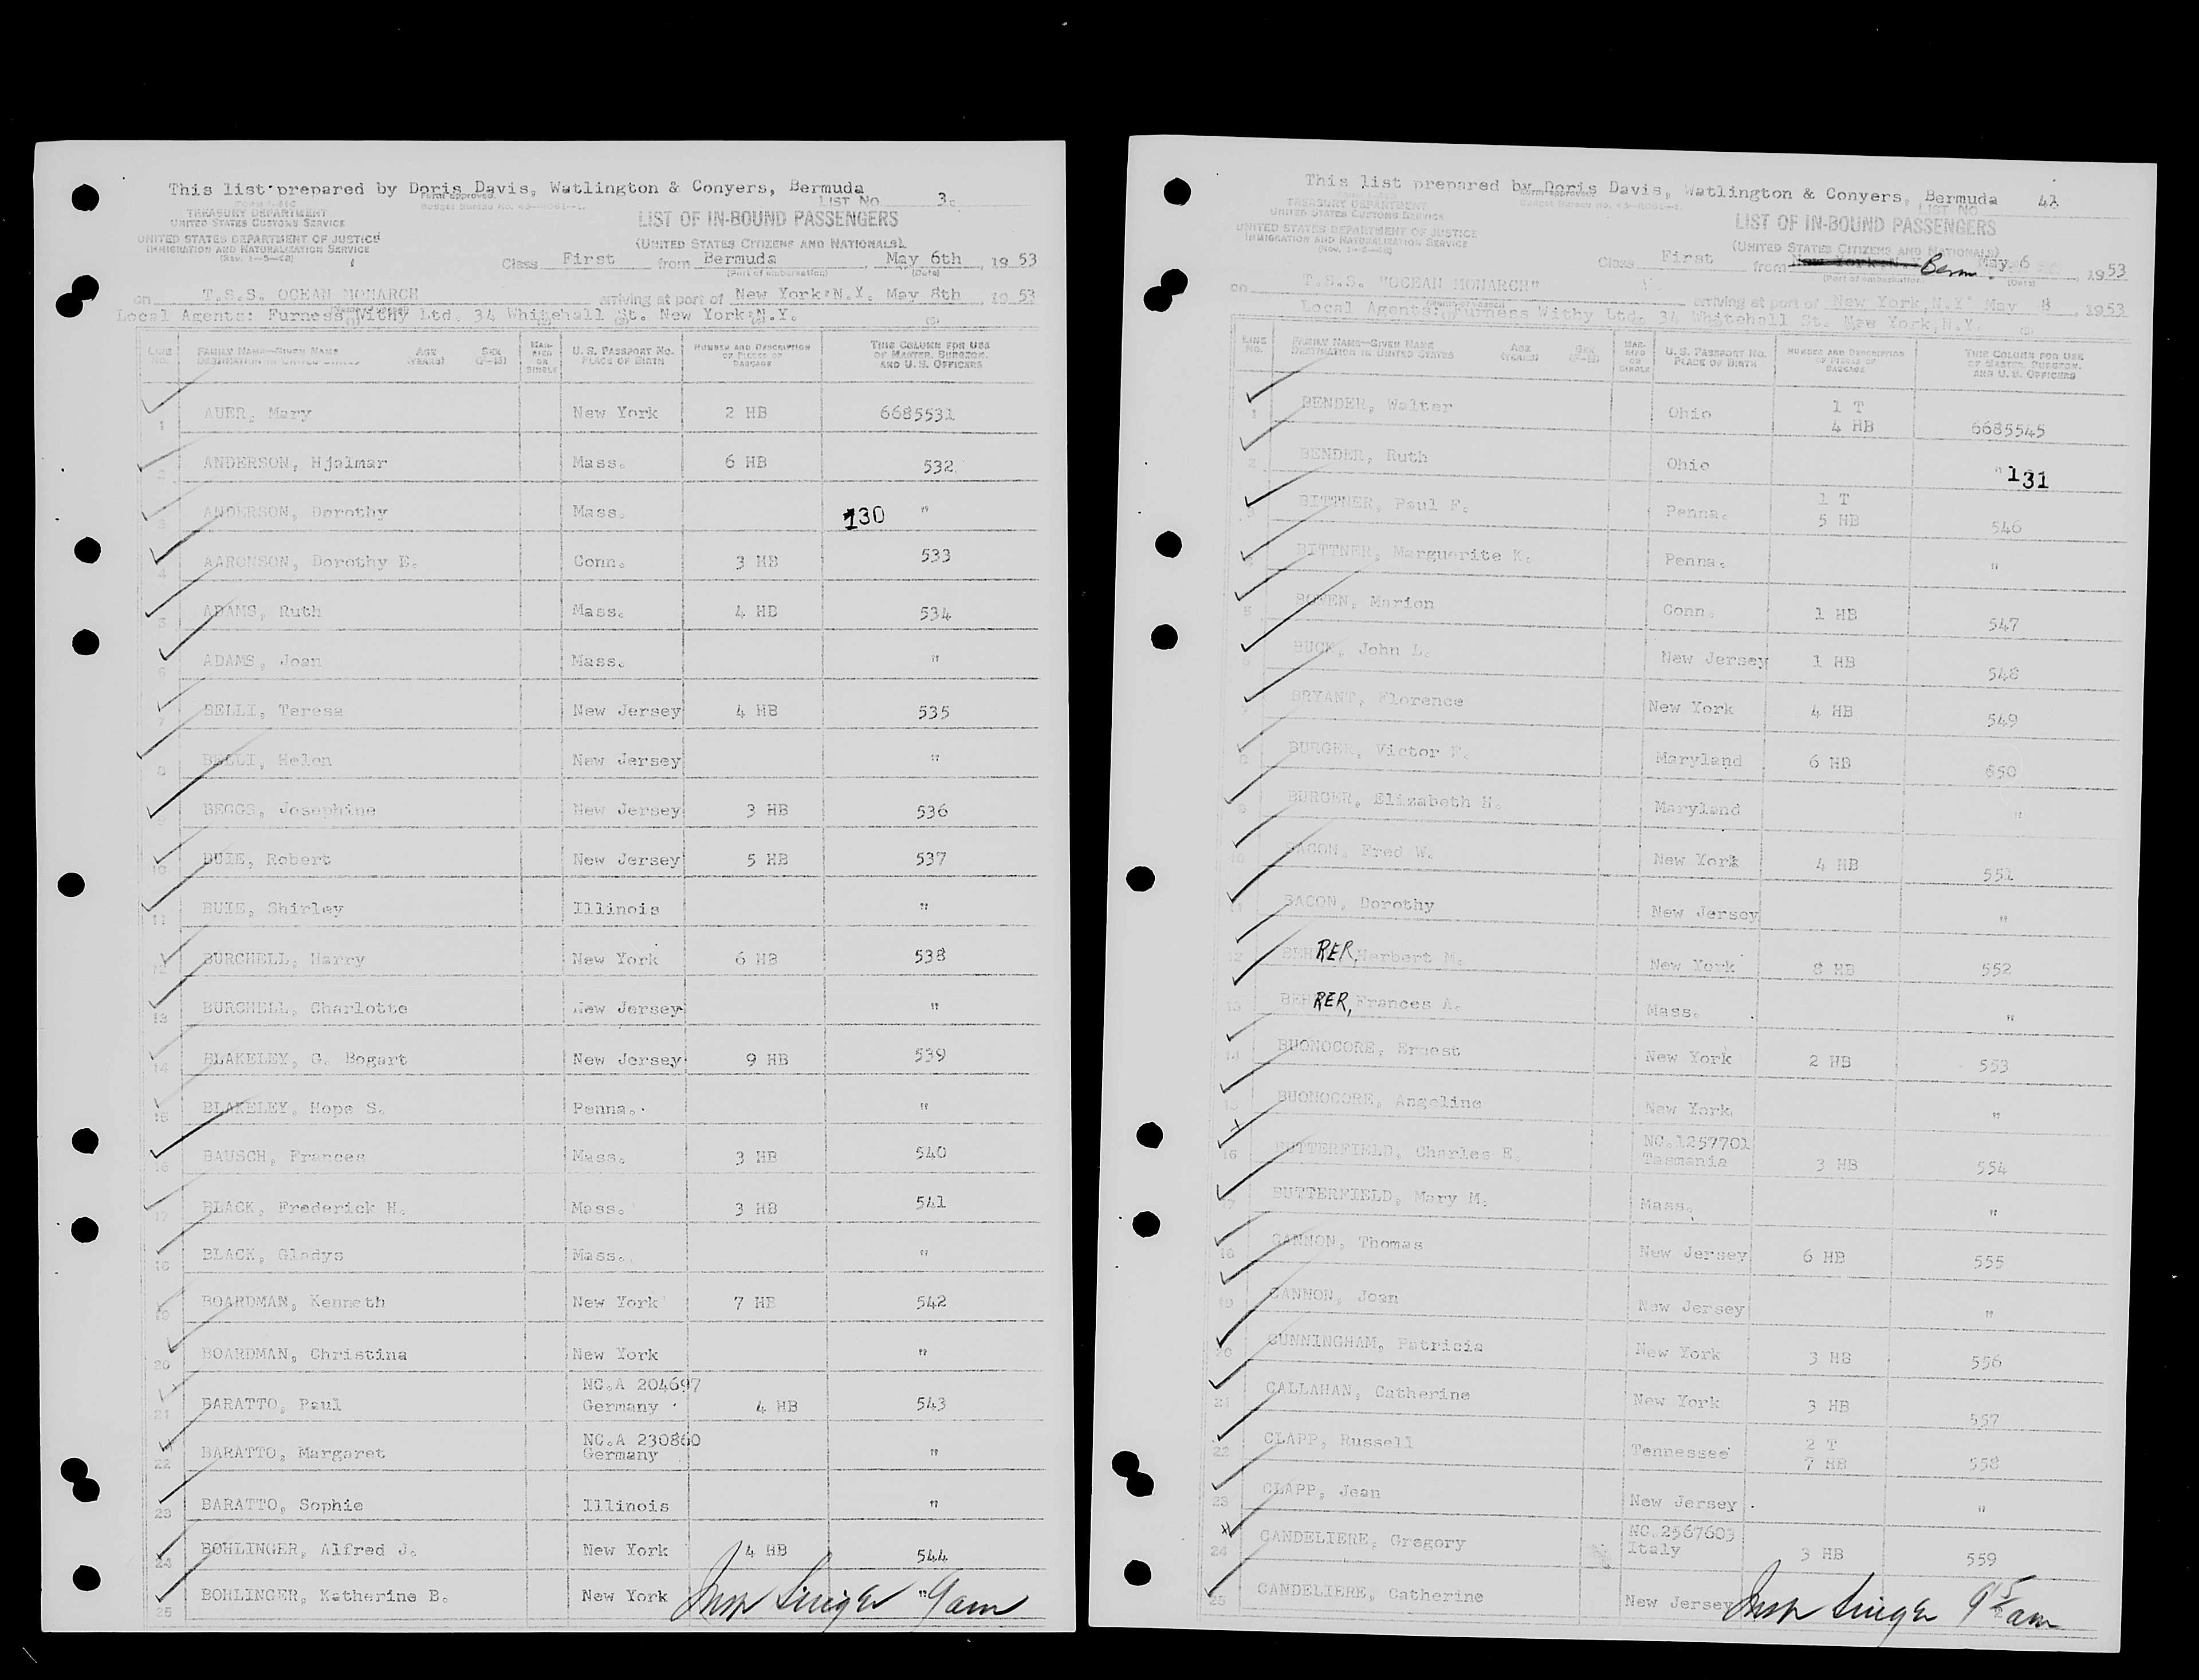 This list prepared by Doris Davis, Watlington & Conyers, Bermuda
LIST No. 3.
Form approved.
TREASURY DEPARTMENT
UNITED STATES CUSTOMS SERVICE
UNITED STATES DEPARTMENT OF JUSTICE
IMMIGRATION AND NATURALIZATION SERVICE
LIST OF IN-BOUND PASSENGERS
(UNITED STATES CITIZENS AND NATIONALS)
Class First from Bermuda, May 6th, 1953
(Port of embarkation) (Date)
on T.S.S. OCEAN MONARCH arriving at port of New York:N.Y. May 8th, 1953
Local Agents: Furness Withy Ltd. 34 Whitehall St. New York:N.Y.
LINE No. FAMILY NAME—GIVEN NAME DESTINATION IN UNITED STATES AGE (YEARS) SEX (F-M) MARRIED OR SINGLE U. S. PASSPORT No. PLACE OF BIRTH NUMBER AND DESCRIPTION OF PIECES OF BAGGAGE THIS COLUMN FOR USE OF MASTER, SURGEON, AND U. S. OFFICERS
1 AUER, Mary New York 2 HB 6685531
2 ANDERSON, Hjalmar Mass. 6 HB 532
3 ANDERSON, Dorothy Mass. 130 "
4 AARONSON, Dorothy E. Conn. 3 HB 533
5 ADAMS, Ruth Mass. 4 HB 534
6 ADAMS, Joan Mass. "
7 BELLI, Teresa New Jersey 4 HB 535
8 BELLI, Helen New Jersey "
9 BEGGS, Josephine New Jersey 3 HB 536
10 BUIE, Robert New Jersey 5 HB 537
11 BUIE, Shirley Illinois "
12 BURCHELL, Harry New York 6 HB 538
13 BURCHELL, Charlotte New Jersey "
14 BLAKELEY, G. Bogart New Jersey 9 HB 539
15 BLAKELEY, Hope S. Penna. "
16 BAUSCH, Frances Mass. 3 HB 540
17 BLACK, Frederick H. Mass. 3 HB 541
18 BLACK, Gladys Mass. "
19 BOARDMAN, Kenneth New York 7 HB 542
20 BOARDMAN, Christina New York "
21 BARATTO, Paul NC.A 204697 Germany 4 HB 543
22 BARATTO, Margaret NC.A 230860 Germany "
23 BARATTO, Sophie Illinois "
24 BOHLINGER, Alfred J. New York 4 HB 544
25 BOHLINGER, Katherine B. New York "
Insp Singer 9am
This list prepared by Doris Davis, Watlington & Conyers, Bermuda
LIST NO.
TREASURY DEPARTMENT
UNITED STATES CUSTOMS SERVICE
UNITED STATES DEPARTMENT OF JUSTICE
IMMIGRATION AND NATURALIZATION SERVICE
LIST OF IN-BOUND PASSENGERS
(UNITED STATES CITIZENS AND NATIONALS)
Class First from New York:N. Berm. May 6, 1953
(Port of embarkation) (Date)
on T.S.S. "OCEAN MONARCH" arriving at port of New York,N.Y. May 8, 1953
Local Agents: Furness Withy Ltd. 34 Whitehall St. New York,N.Y.
LINE No. FAMILY NAME—GIVEN NAME DESTINATION IN UNITED STATES AGE (YEARS) SEX (F-M) MARRIED OR SINGLE U. S. PASSPORT No. PLACE OF BIRTH NUMBER AND DESCRIPTION OF PIECES OF BAGGAGE THIS COLUMN FOR USE OF MASTER, SURGEON, AND U. S. OFFICERS
1 BENDER, Walter Ohio 1 T 4 HB 6685545
2 BENDER, Ruth Ohio " 131
3 BITTNER, Paul F. Penna. 1 T 5 HB 546
4 BITTNER, Marguerite K. Penna. "
5 BOWEN, Marion Conn. 1 HB 547
6 BUCK, John L. New Jersey 1 HB 548
7 BRYANT, Florence New York 4 HB 549
8 BURGER, Victor F. Maryland 6 HB 550
9 BURGER, Elizabeth H. Maryland "
10 BACON, Fred W. New York 4 HB 551
11 BACON, Dorothy New Jersey "
12 BEHRER, Herbert M. New York 8 HB 552
13 BEHRER, Frances A. Mass. "
14 BUONOCORE, Ernest New York 2 HB 553
15 BUONOCORE, Angeline New York "
16 BUTTERFIELD, Charles E. NC.1257701 Tasmania 3 HB 554
17 BUTTERFIELD, Mary M. Mass. "
18 CANNON, Thomas New Jersey 6 HB 555
19 CANNON, Joan New Jersey "
20 CUNNINGHAM, Patricia New York 3 HB 556
21 CALLAHAN, Catherine New York 3 HB 557
22 CLAPP, Russell Tennessee 2 T 7 HB 558
23 CLAPP, Jean New Jersey "
24 CANDELIERE, Gregory NC.2567603 Italy 3 HB 559
25 CANDELIERE, Catherine New Jersey
Insp Singer 9 15 am